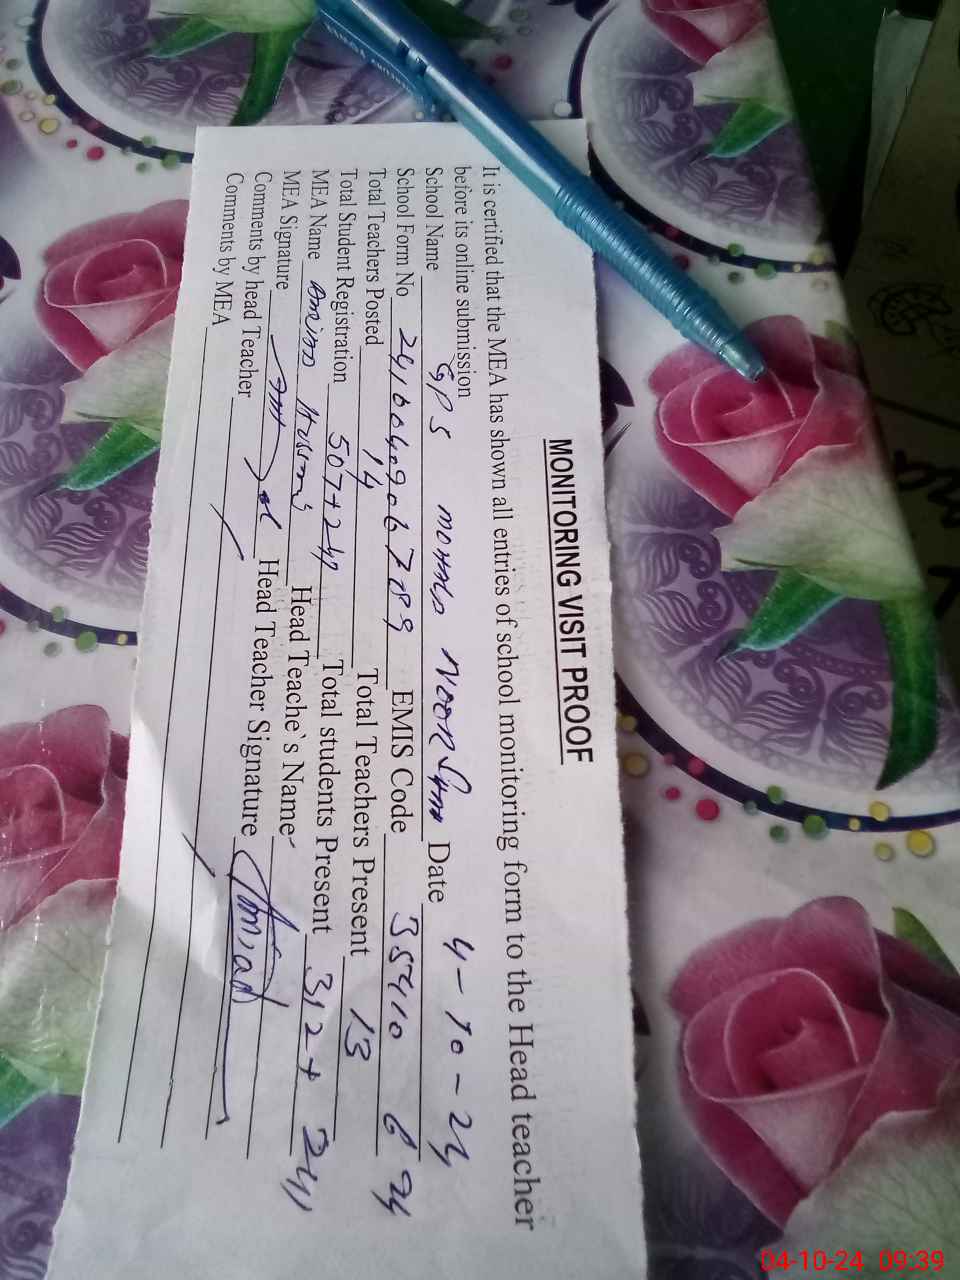 MONITORING VISIT PROOF
It is certified that the MEA has shown all entries of school monitoring form to the Head teacher
before its online submission
School Name GPS Noor Date 4-10-24
School Form No EMIS Code 35410 624
Total Teachers Posted 14 Total Teachers Present 13
Total Student Registration 507+24 Total students Present 312+
MEA Name Head Teache`s Name
MEA Signature Head Teacher Signature
Comments by head Teacher
Comments by MEA
04-10-24 09:39